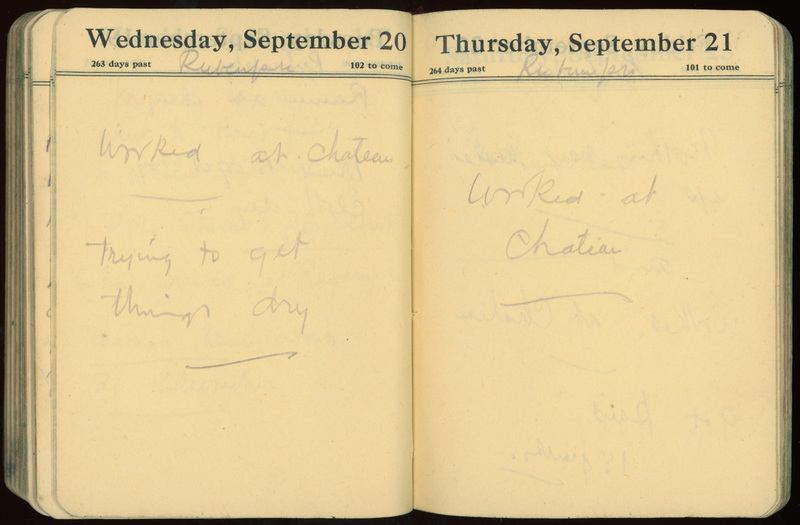 Wednesday, September 20
263 days past
102 to come
Worked at Chateau
trying to get
things dry
Thursday, September 21
264 days past
101 to come
Worked at
Chateau